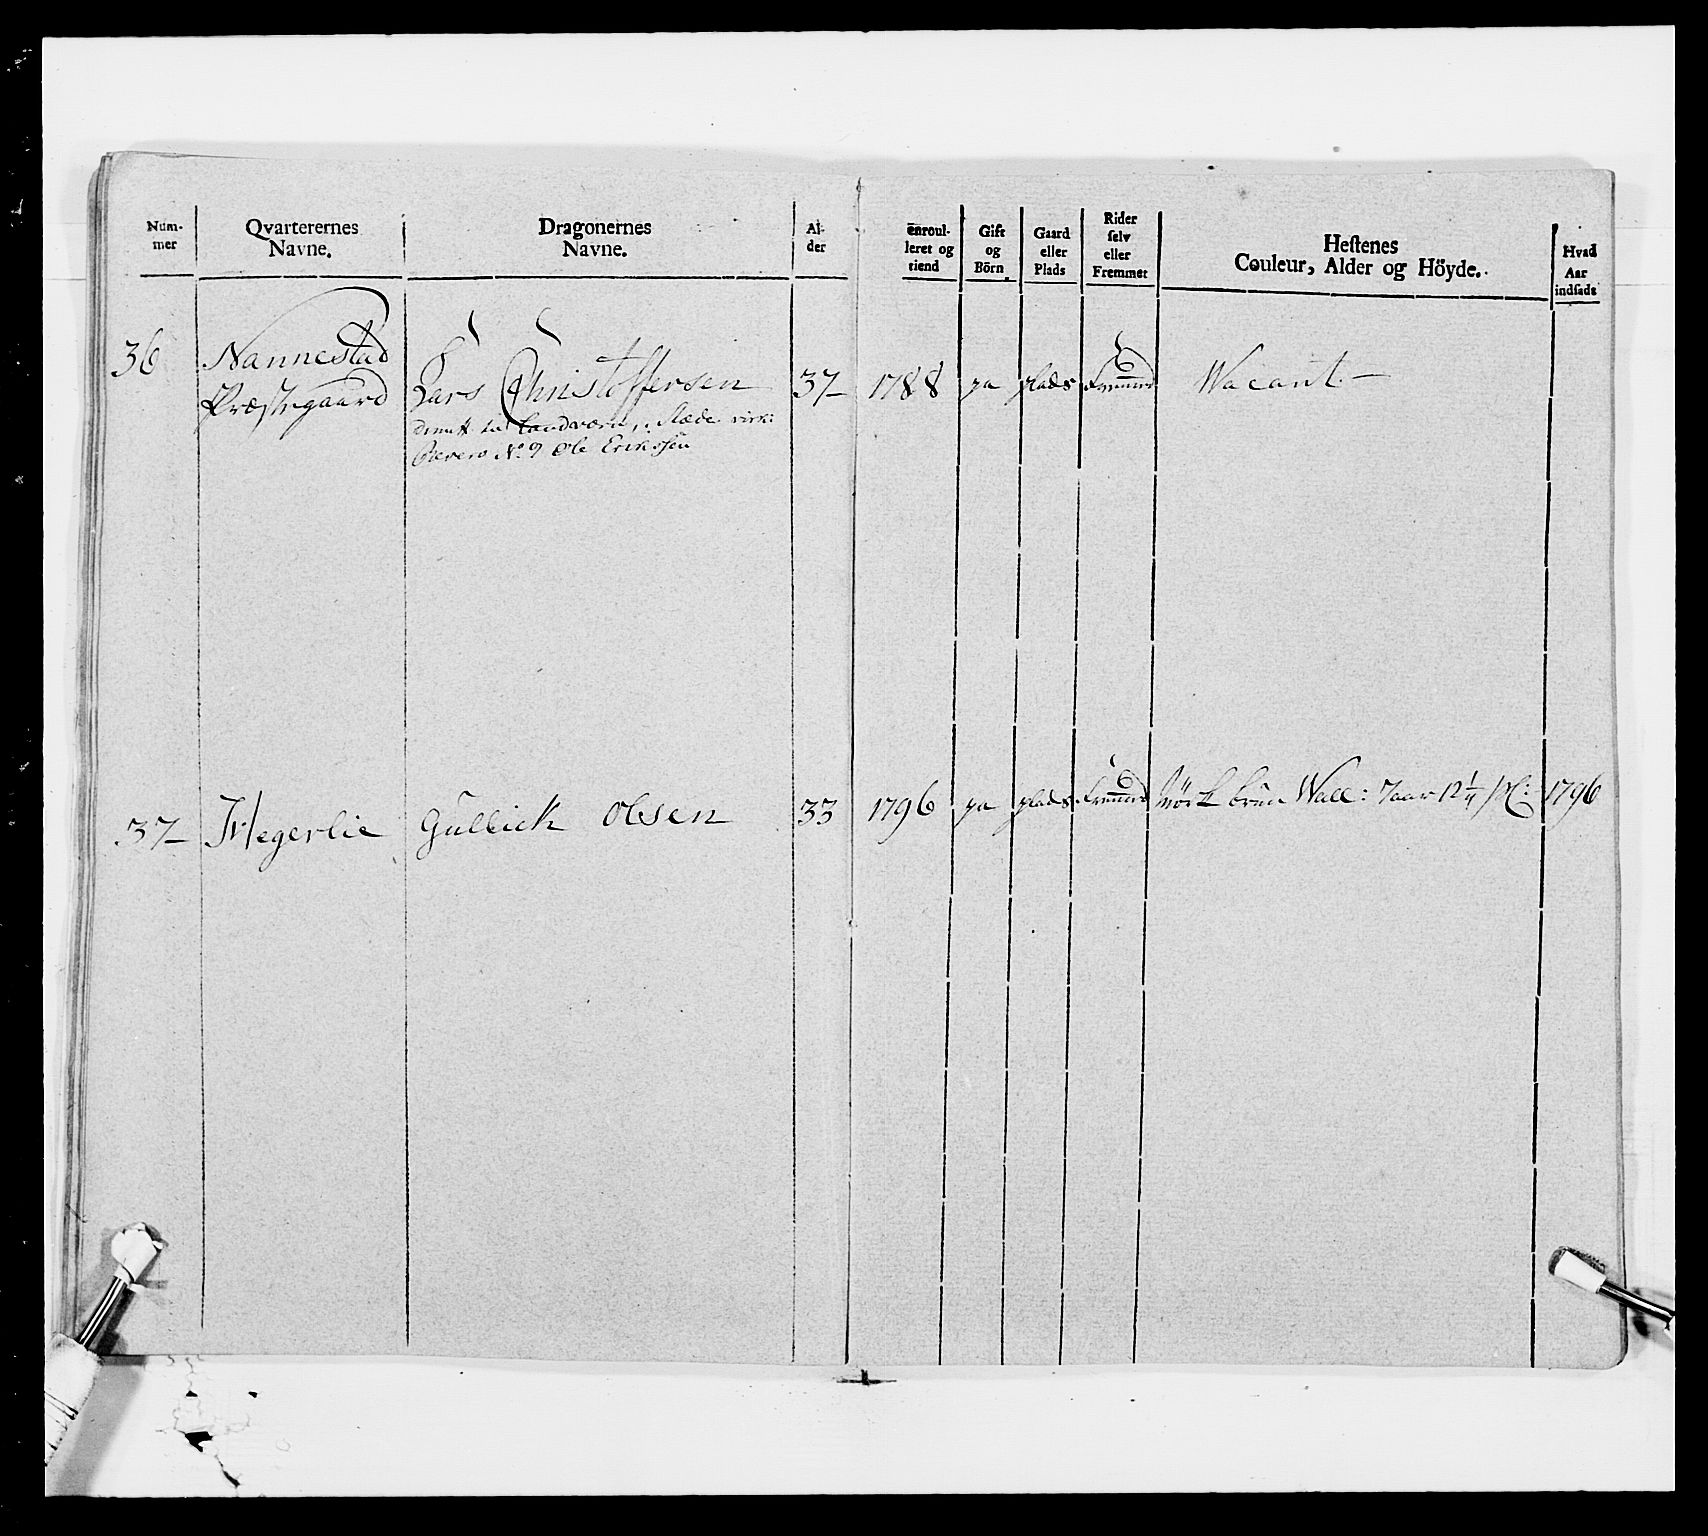 Num-
mer
Qvarterernes
Navne.
Dragonernes
Navne.
Al-
der
enroul-
leret og
tiend
Gift
og
Börn
Gaard
eller
Plads
Rider
selv
eller
Fremmet
Hestenes
Couleur, Alder og Höyde.
Hvad
Aar
indsadt
36 Nannestad
Præstegaard Lars Christoffersen 37 1788 ja plads Fremmed Wacant.
Landværn
No 9 Ole Erikssen
37 Hegerlie Gulbick Olsen 33 1796 ja plads Fremmed Mörk brun Wall: 7 aar 12 1/4 1796